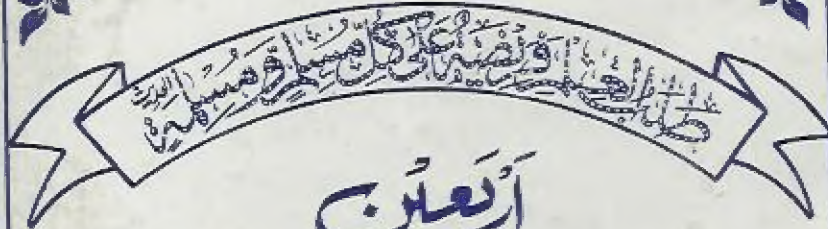 طلب العلم فريضة على كل مسلم و مسلمة الحديث
أربعين